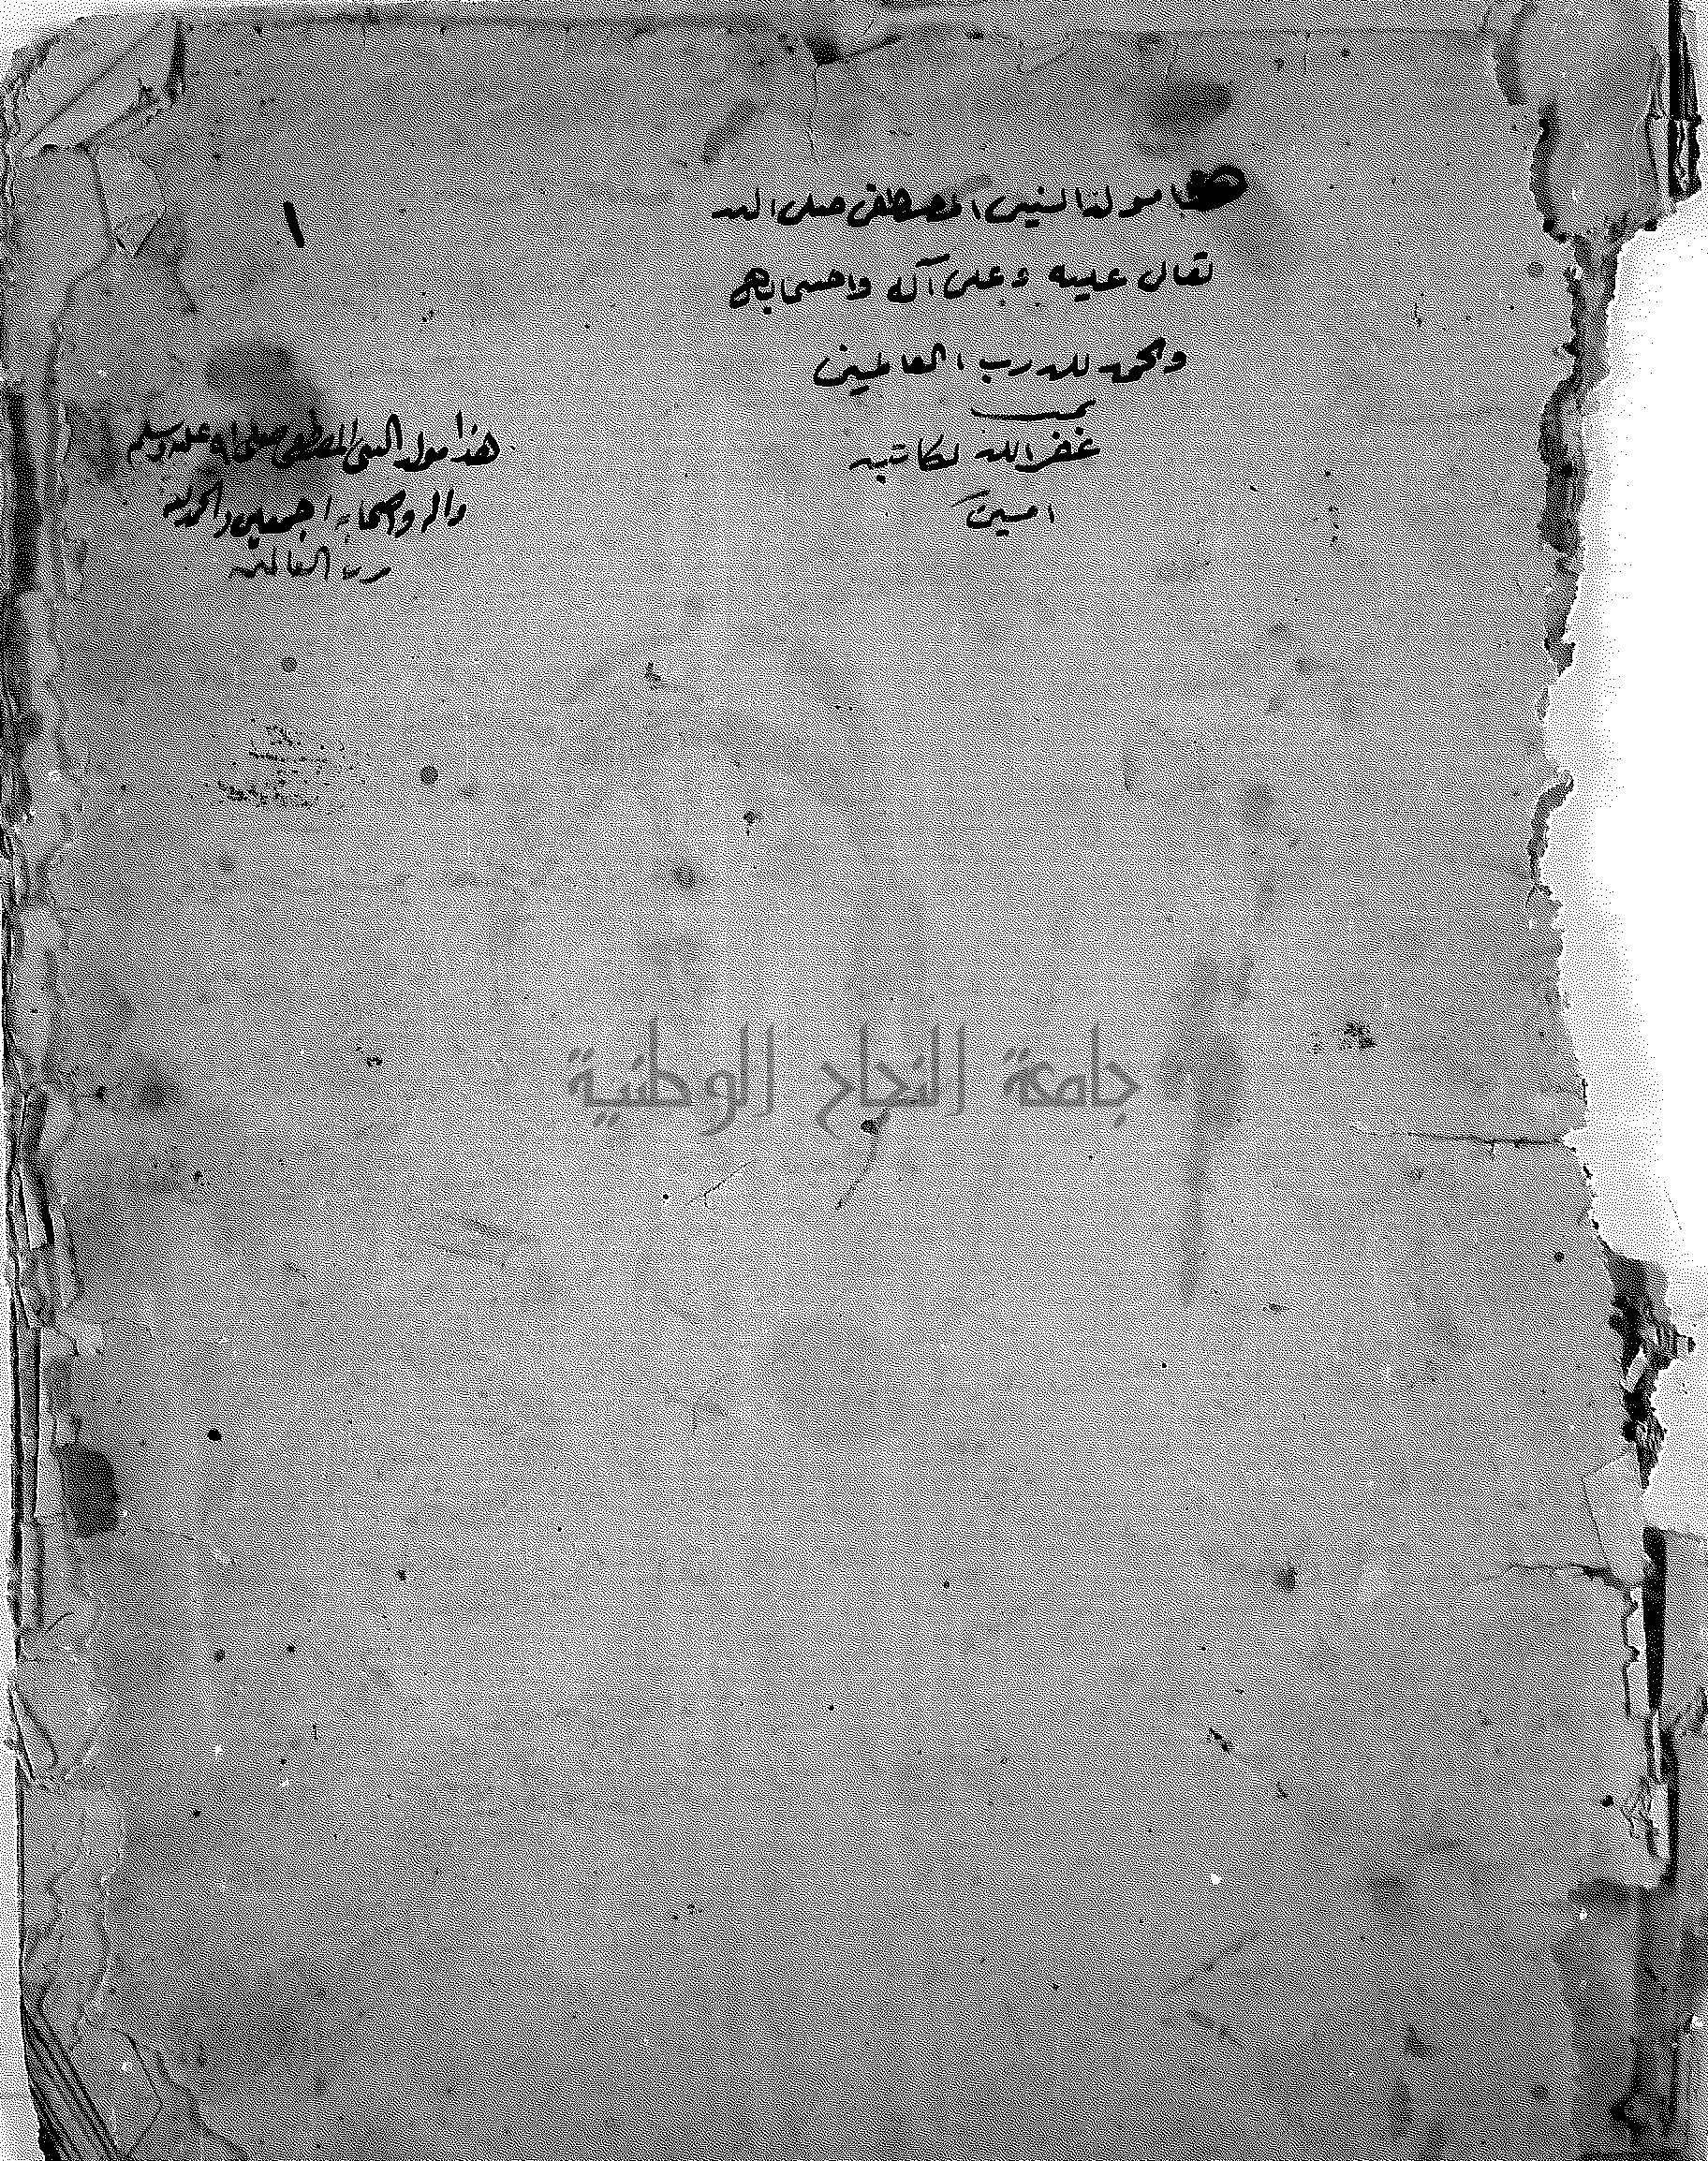 هذا مولد النبي المصطفى صلى الله
تعالى عليه وعلى آله واصحابه
والحمد لله رب العالمين
غفر الله لكاتبه
امين
١
هذا مولد النبي المصطفى صلى الله عليه وسلم
واله واصحابه اجمعين والحمد لله
رب العالمين
جامعة النجاح الوطنية